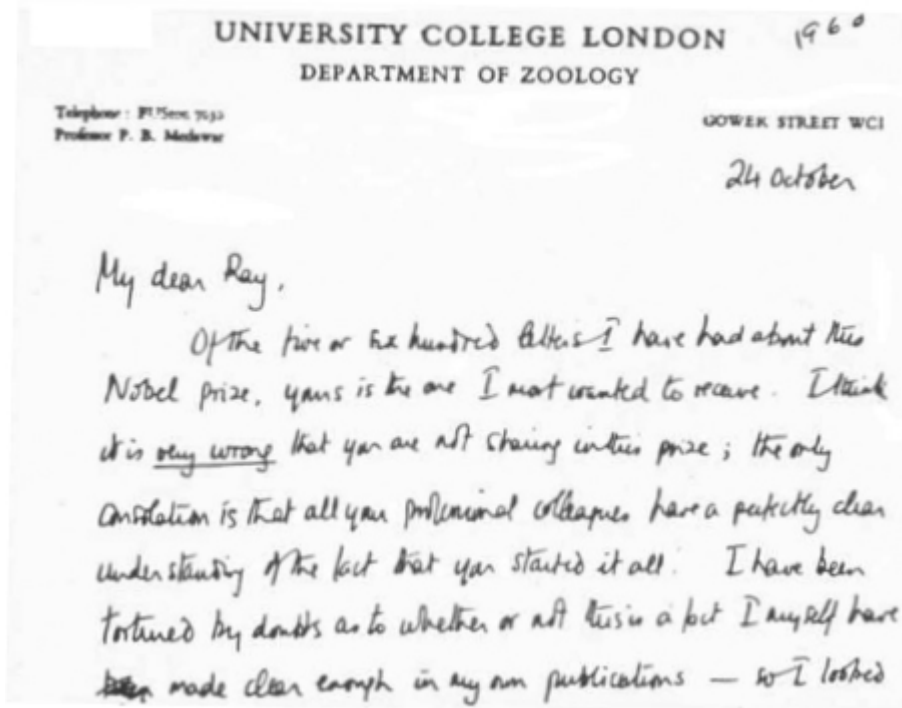 UNIVERSITY COLLEGE LONDON
1960
DEPARTMENT OF ZOOLOGY
Telephone :
Professor P. B. Medawar
GOWER STREET WC1
24 October
My dear Ray,
Of the five or six hundred letters I have had about this
Nobel prize, yours is the one I most wanted to receive. I think
it is very wrong that you are not sharing in this prize ; the only
consolation is that all your professional colleagues have a perfectly clear
understanding of the fact that you started it all. I have been
tortured by doubts as to whether or not this is a fact I myself have
made clear enough in my own publications — so I looked